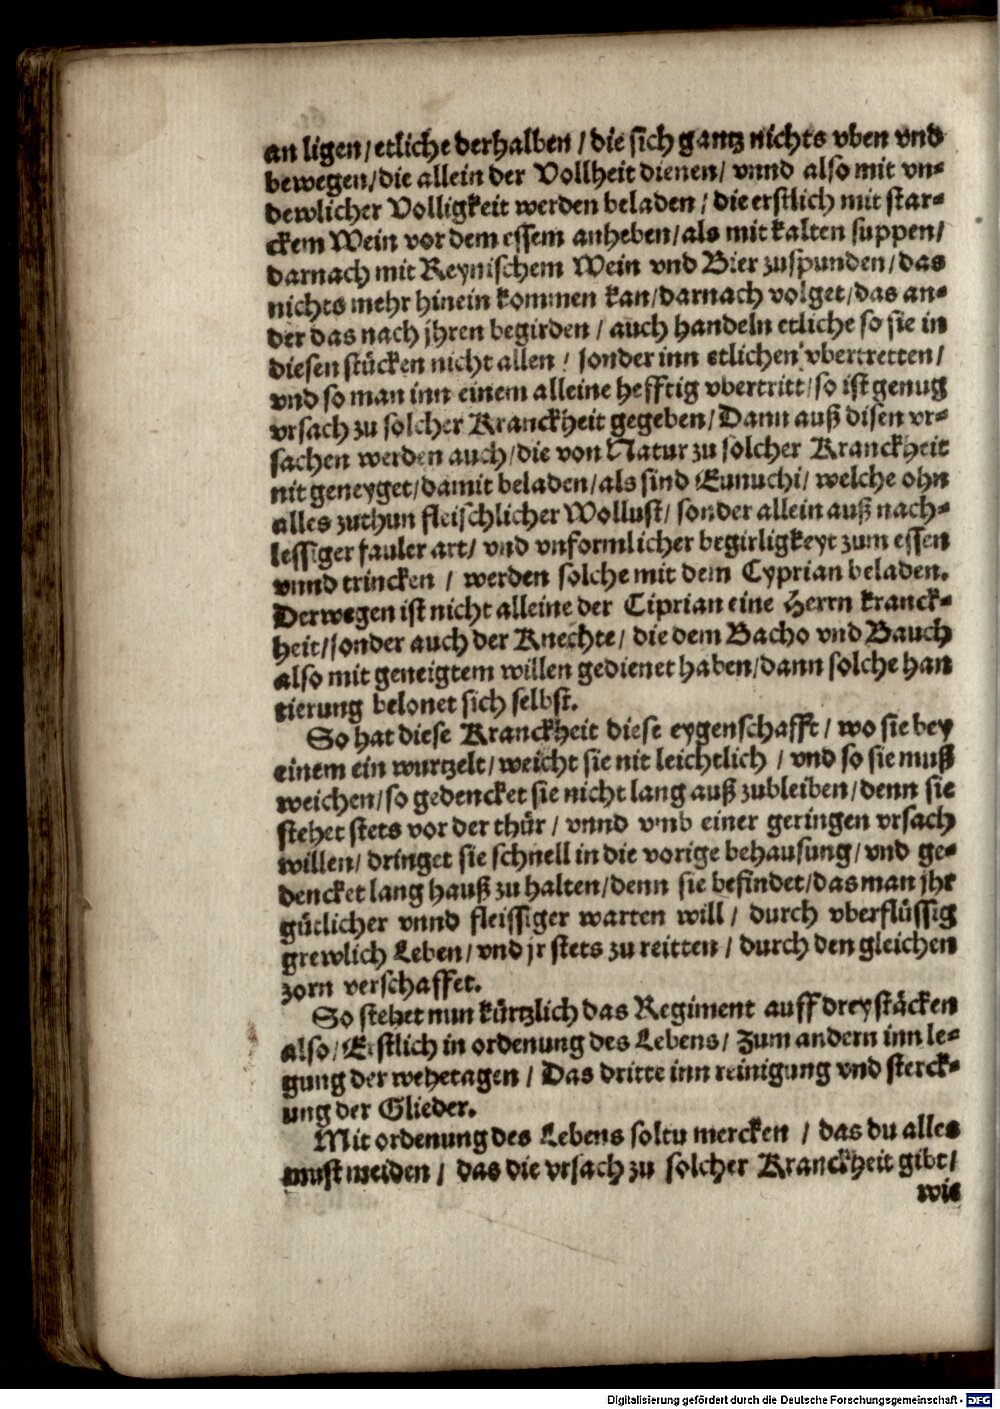 an ligen/etliche derhalben/die sich gantz nichts vben vnd
bewegen/die allein der Vollheit dienen/ vnnd also mit vn-
dewlicher Volligkeit werden beladen/die erstlich mit star-
ckem Wein vor dem essem anheben/als mit kalten suppen/
darnach mit Reynischem Wein vnd Bier zuspunden/das
nichts mehr hinein kommen kan/darnach volget/das an-
der das nach jhren begirden/ auch handeln etliche so sie in
diesen stücken nicht allen/ sonder inn etlichen vbertretten/
vnd so man inn einem alleine hefftig vbertritt/so ist genug
vrsach zu solcher Kranckheit gegeben/Dann auß disen vr-
sachen werden auch/die von Natur zu solcher Kranckheit
nit geneyget/damit beladen/als sind Eunuchi/ welche ohn
alles zuthun fleischlicher Wollust/ sonder allein auß nach-
lessiger fauler art/ vnd vnformlicher begirligkeyt zum essen
vnnd trincken/ werden solche mit dem Cyprian beladen.
Derwegen ist nicht alleine der Ciprian eine Herrn kranck-
heit/sonder auch der Knechte/ die dem Bacho vnd Bauch
also mit geneigtem willen gedienet haben/dann solche han
tierung belonet sich selbst.
So hat diese Kranckheit diese eygenschafft/ wo sie bey
einem ein wurtzelt/weicht sie nit leichtlich/ vnd so sie muß
weichen/so gedencket sie nicht lang auß zubleiben/denn sie
stehet stets vor der thür/ vnnd vmb einer geringen vrsach
willen/ dringet sie schnell in die vorige behausung/vnd ge-
dencket lang hauß zu halten/denn sie befindet/das man jhr
gütlicher vnnd fleissiger warten will/ durch vberflüssig
grewlich Leben/vnd jr stets zu reitten/ durch den gleichen
zorn verschaffet.
So stehet nun kürtzlich das Regiment auff drey stäcken
also/Erstlich in ordenung des Lebens/ Zum andern inn le-
gung der wehetagen/ Das dritte inn reinigung vnd sterck-
ung der Glieder.
Mit ordenung des Lebens soltu mercken/ das du alles
must meiden/ das die vrsach zu solcher Kranckheit gibt/
wie
Digitalisierung gefördert durch die Deutsche Forschungsgemeinschaft - DFG